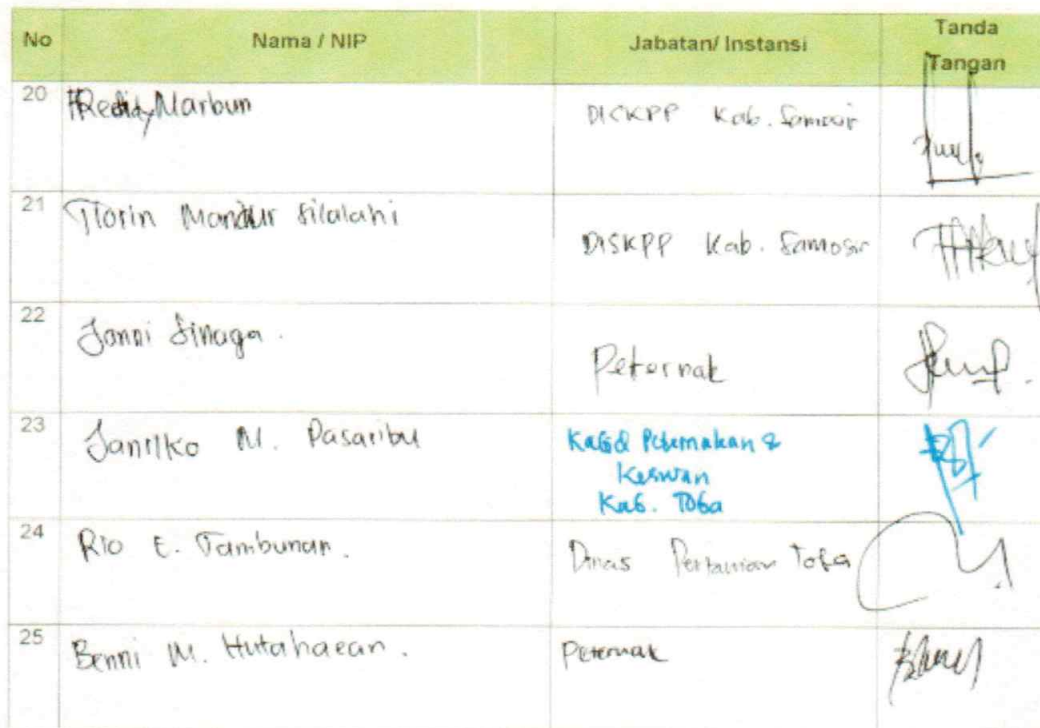 No Nama / NIP Jabatan/ Instansi Tanda Tangan
20 FReddy Marbun DISKPP Kab. Samosir
21 Florin Mandur Silalahi DISKPP Kab. Samosir
22 Janni Sinaga. Peternak
23 Janilko M. Pasaribu Kabid Peternakan &
Keswan
Kab. Toba
24 Rio E. Tambunan. Dinas Pertanian Toba
25 Benni M. Hutahaean. Peternak